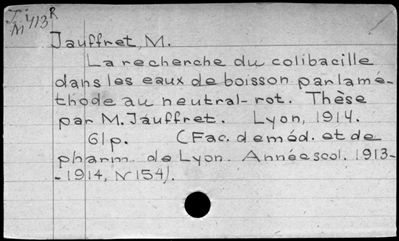 T.
N 413 R
Jauffret, M.
La recherche du colibacille
dans les eaux de boisson par la mé-
thode au neutral-rot. Thèse
par M. Jauffret. Lyon, 1914.
61p. (Fac. de méd. et de
pharm. de Lyon. Année scol. 1913-
-1914, N 154).